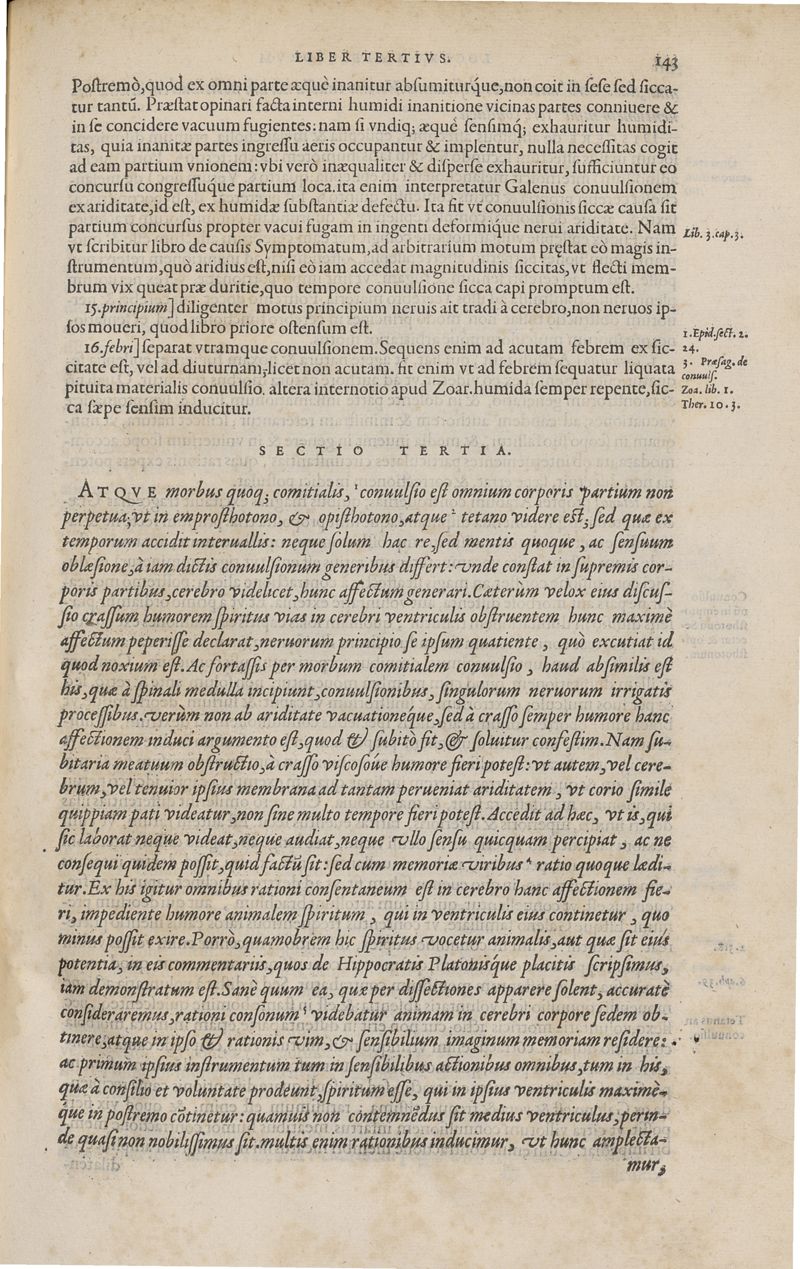 LIBER TERTIVS. 143
Poſtremò, quod ex omni parte æquè inanitur abſumiturq́ue, non coit in ſeſe ſed ſicca-
tur tantū. Præſtat opinari facta interni humidi inanitione vicinas partes conniuere &
in ſe concidere vacuum fugientes: nam ſi vndiq; æqué ſenſimq́; exhauritur humidi-
tas, quia inanitæ partes ingreſſu aeris occupantur & implentur, nulla neceſſitas cogit
ad eam partium vnionem: vbi verò inæqualiter & diſperſe exhauritur, ſufficiuntur eo
concurſu congreſſuque partium loca. ita enim interpretatur Galenus conuulſionem
ex ariditate, id eſt, ex humidæ ſubſtantiæ defectu. Ita fit vt conuulſionis ſiccæ cauſa ſit
partium concurſus propter vacui fugam in ingenti deformique nerui ariditate. Nam
Lib. 3. cap. 3.
vt ſcribitur libro de cauſis Symptomatum, ad arbitrarium motum pręſtat eò magis in-
ſtrumentum, quò aridius eſt, niſi eò iam accedat magnitudinis ſiccitas, vt flecti mem-
brum vix queat præ duritie, quo tempore conuulſione ſicca capi promptum eſt.
15. principium] diligenter motus principium neruis ait tradi à cerebro, non neruos ip-
ſos moueri, quod libro priore oſtenſum eſt.
1. Epid. ſect. 2.
16. febri] ſeparat vtramque conuulſionem. Sequens enim ad acutam febrem ex ſic-
24.
citate eſt, vel ad diuturnam, licet non acutam. fit enim vt ad febrem ſequatur liquata
3. Præſag. de
conuulſ.
pituita materialis conuulſio. altera internotio apud Zoar. humida ſemper repente, ſic-
Zoa. lib. 1.
ca ſæpe ſenſim inducitur.
Ther. 10. 3.
SECTIO TERTIA.
ATQVE morbus quoq; comitialis, ¹ conuulſio eſt omnium corporis partium non
perpetua, vt in emproſthotono, & opiſthotono, atque ² tetano videre eſt, ſed quæ ex
temporum accidit interuallis: neque ſolum hac re, ſed mentis quoque, ac ſenſuum
oblæſione, à iam dictis conuulſionum generibus differt: vnde conſtat in ſupremis cor-
poris partibus, cerebro videlicet, hunc affectum generari. Cæterum velox eius diſcuſ-
ſio craſſum humorem ſpiritus vias in cerebri ventriculis obſtruentem hunc maximè
affectum peperiſſe declarat, neruorum principio ſe ipſum quatiente, quò excutiat id
quod noxium eſt. Ac fortaſſis per morbum comitialem conuulſio, haud abſimilis eſt
his, quæ à ſpinali medulla incipiunt, conuulſionibus, ſingulorum neruorum irrigatis
proceſſibus. verùm non ab ariditate vacuationeq́ue, ſed à craſſo ſemper humore hanc
affectionem induci argumento eſt, quod & ſubitò fit, & ſoluitur confeſtim. Nam ſu-
bitaria meatuum obſtructio, à craſſo viſcoſoue humore fieri poteſt: vt autem, vel cere-
brum, vel tenuior ipſius membrana ad tantam perueniat ariditatem, vt corio ſimile
quippiam pati videatur, non ſine multo tempore fieri poteſt. Accedit ad hæc, vt is, qui
ſic laborat neque videat, neque audiat, neque vllo ſenſu quicquam percipiat, ac ne
conſequi quidem poſſit, quid factū ſit: ſed cum memoriæ viribus ⁴ ratio quoque lædi-
tur. Ex his igitur omnibus rationi conſentaneum eſt in cerebro hanc affectionem fie-
ri, impediente humore animalem ſpiritum, qui in ventriculis eius continetur, quo
minus poſſit exire. Porrò, quamobrem hic ſpiritus vocetur animalis, aut quæ ſit eius
potentia, in eis commentariis, quos de Hippocratis Platonisq́ue placitis ſcripſimus,
iam demonſtratum eſt. Sanè quum ea, quæ per diſſectiones apparere ſolent, accuratè
conſideraremus, rationi conſonum ⁵ videbatur animam in cerebri corpore ſedem ob-
tinere, atque in ipſo & rationis vim, & ſenſibilium imaginum memoriam reſidere:
ac primum ipſius inſtrumentum tum in ſenſibilibus actionibus omnibus, tum in his,
quæ à conſilio et voluntate prodeunt, ſpiritum eſſe, qui in ipſius ventriculis maximè-
que in poſtremo cōtinetur: quamuis non contemnēdus ſit medius ventriculus, perin-
de quaſi non nobiliſſimus ſit. multis enim rationibus inducimur, vt hunc amplecta-
mur,